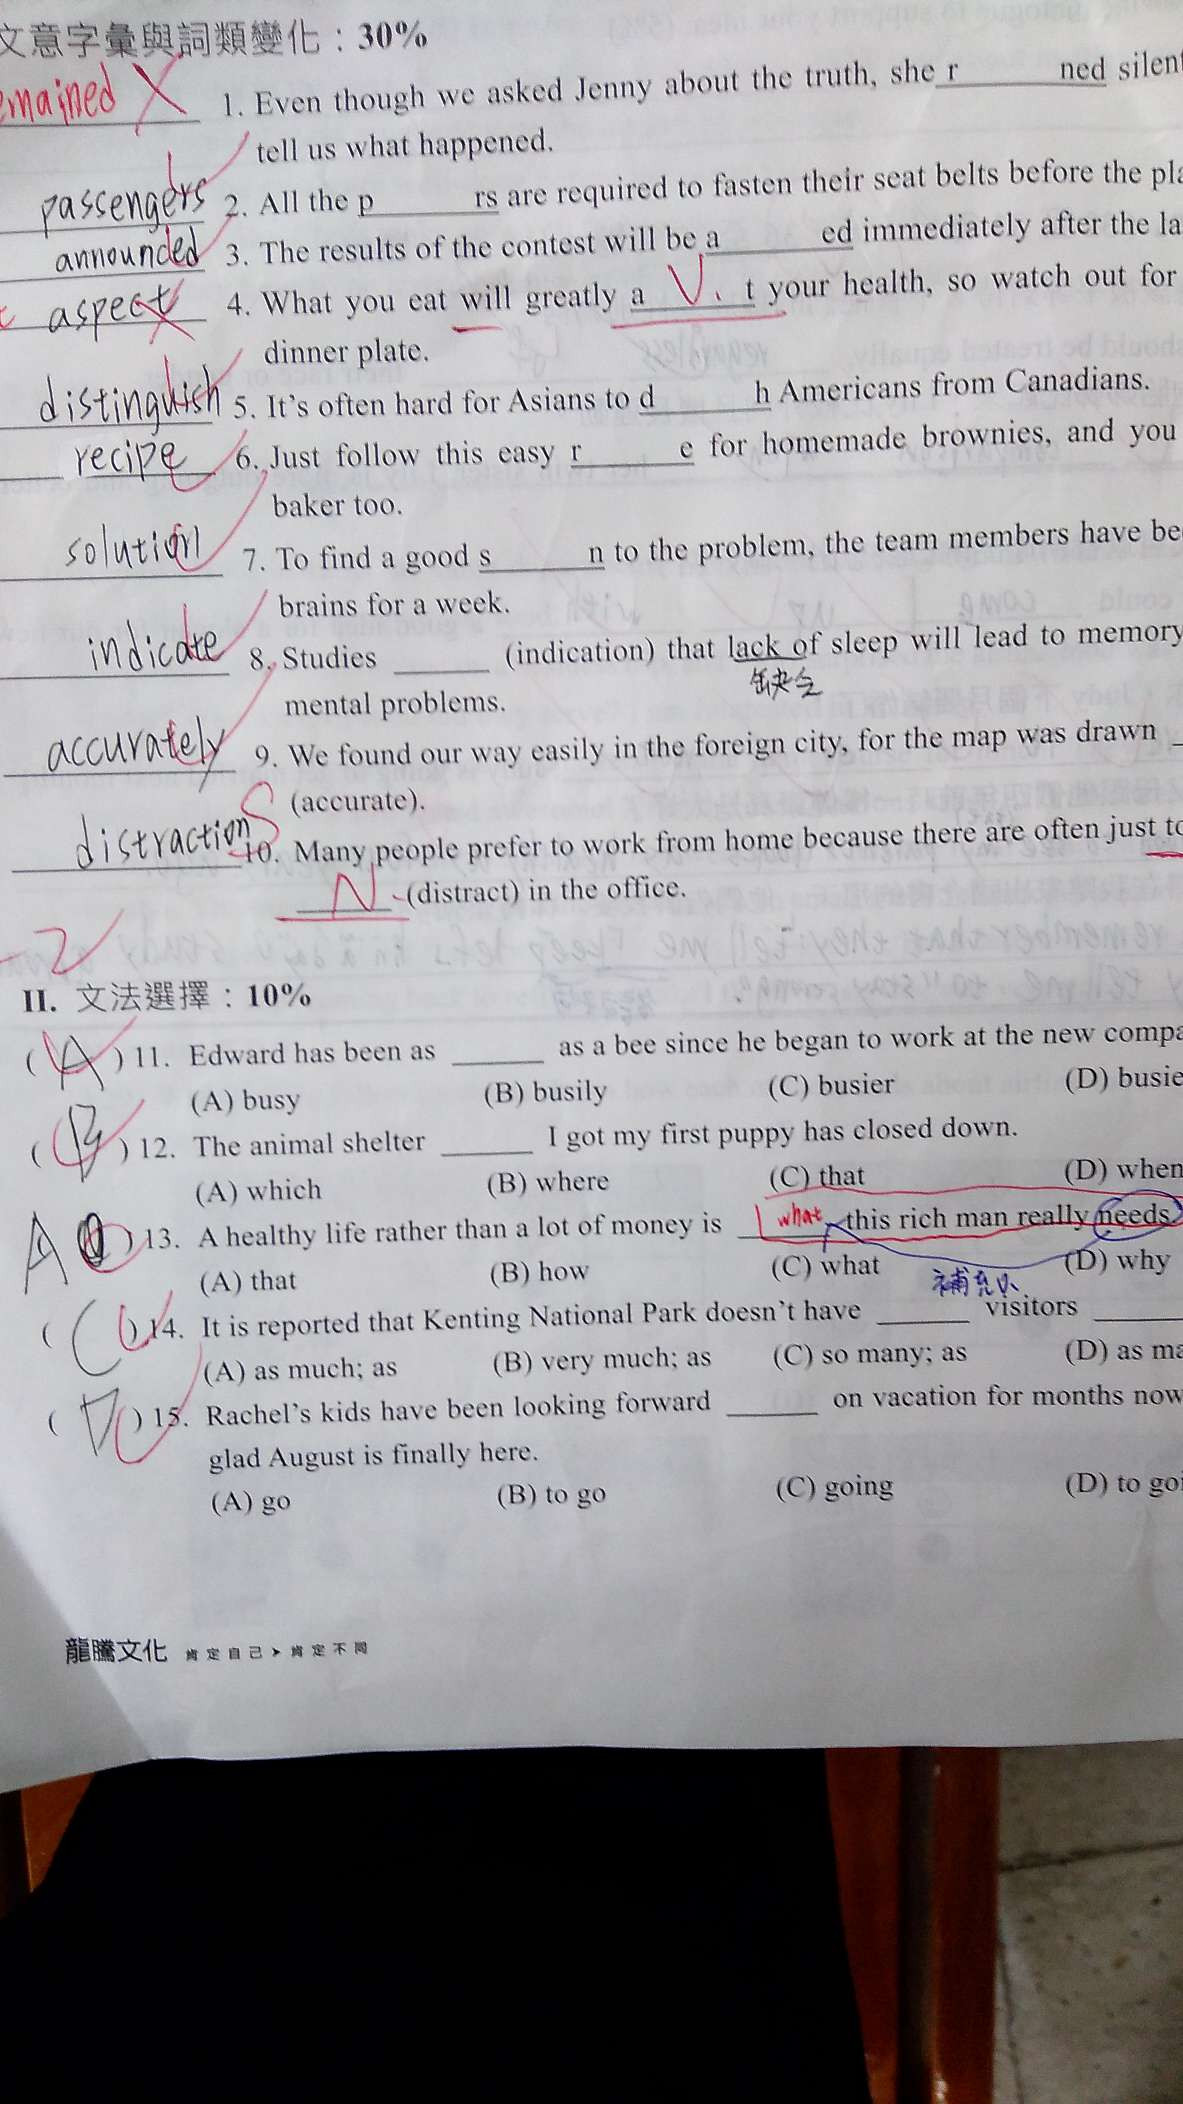 文意字彙與詞類變化：30%
emained X 1. Even though we asked Jenny about the truth, she r______ned silent
tell us what happened.
passengers 2. All the p______rs are required to fasten their seat belts before the pla
announded 3. The results of the contest will be a______ed immediately after the la
aspect 4. What you eat will greatly a V. t your health, so watch out for
dinner plate.
distinguish 5. It's often hard for Asians to d______h Americans from Canadians.
recipe 6. Just follow this easy r______e for homemade brownies, and you
baker too.
solution 7. To find a good s______n to the problem, the team members have be
brains for a week.
indicate 8. Studies ______ (indication) that lack of sleep will lead to memory
缺乏
mental problems.
accurately 9. We found our way easily in the foreign city, for the map was drawn
(accurate).
distractions 10. Many people prefer to work from home because there are often just to
N. (distract) in the office.
-2
II. 文法選擇：10%
( A ) 11. Edward has been as ______ as a bee since he began to work at the new compa
(A) busy (B) busily (C) busier (D) busie
( B ) 12. The animal shelter ______ I got my first puppy has closed down.
(A) which (B) where (C) that (D) when
A ) 13. A healthy life rather than a lot of money is ______ what this rich man really needs.
(A) that (B) how (C) what (D) why
補充
( C ) 14. It is reported that Kenting National Park doesn't have ______ visitors ______
(A) as much; as (B) very much; as (C) so many; as (D) as ma
( D ) 15. Rachel's kids have been looking forward ______ on vacation for months now
glad August is finally here.
(A) go (B) to go (C) going (D) to goi
龍騰文化 肯定自己➤肯定不同